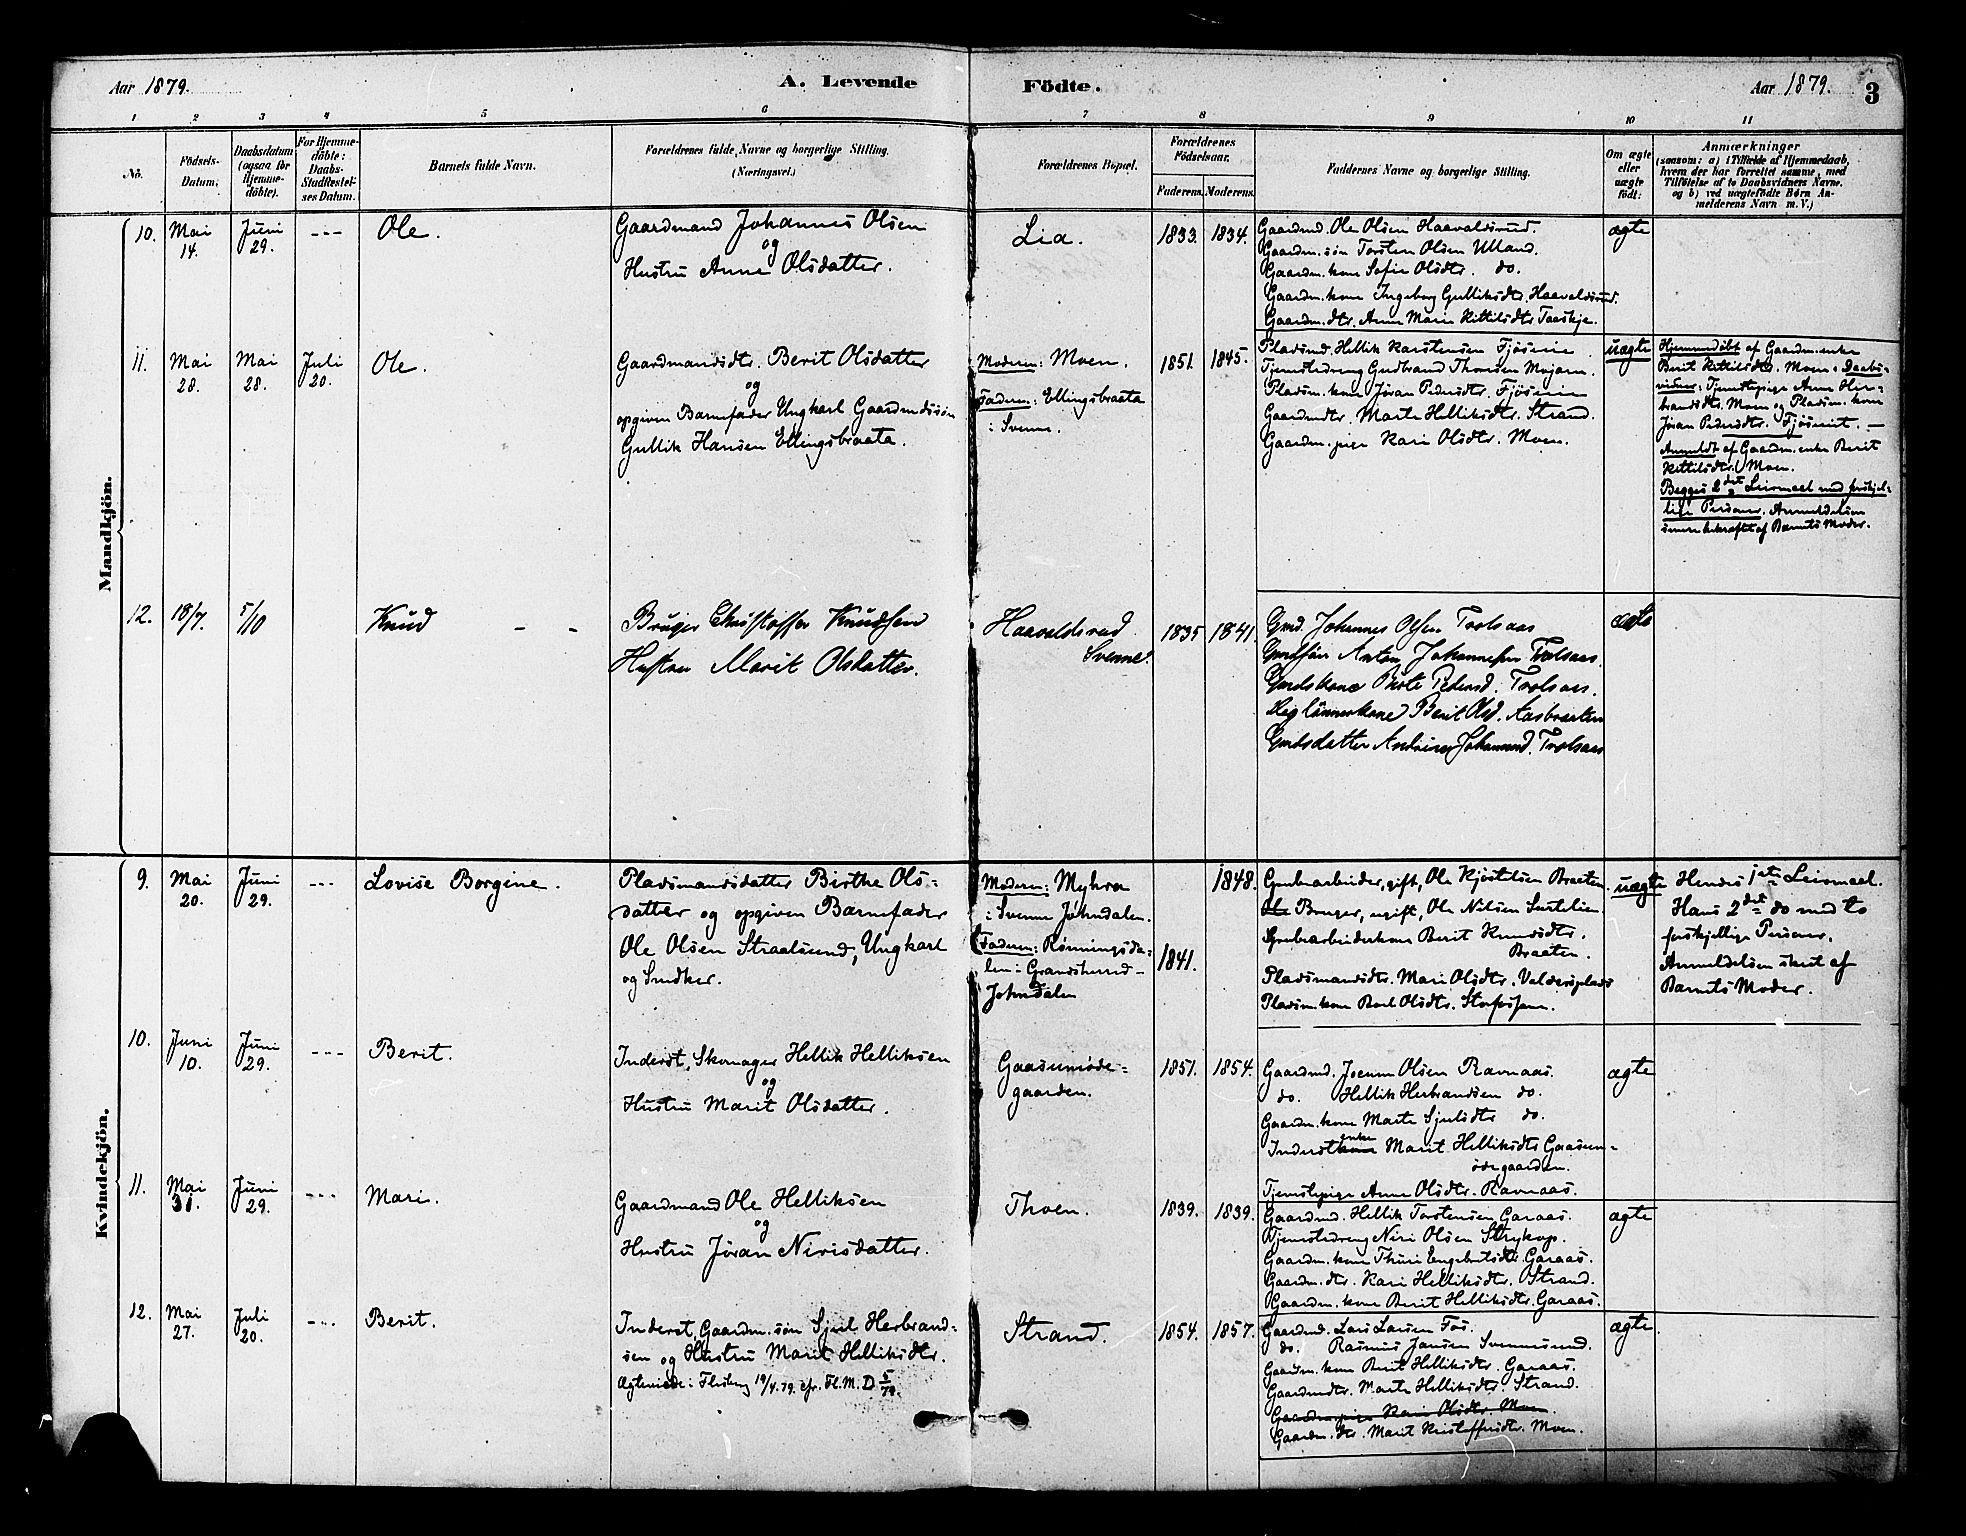 Aar 1879.
A. Levende
Födte.
Aar 1879.
3
1
2
3
4
5
6
7
8
9
10
11
No.
Födsels-
Datum.
Daabsdatum
(ogsaa for
Hjemme-
döbte).
For Hjemme-
döbte:
Daabs-
Stadfæstel-
ses Datum.
Barnets fulde Navn.
Forældrenes fulde Navne og borgerlige Stilling.
(Næringsvei.)
Forældrenes Bopæl.
Forældrenes
Födselsaar.
Faderens.
Moderens.
Faddernes Navne og borgerlige Stilling.
Om ægte
eller
uægte
födt.
Anmærkninger
(saasom: a) i Tilfælde af Hjemmedaab,
hvem der har forrettet samme, med
Tilföielse af to Daabsvidners Navne,
og b) ved uægtefödte Börn An-
melderens Navn m. V.)
Mandkjön.
10.
Mai
14.
Juni
29.
---
Ole.
Gaardmand Johannes Olsen
og
Hustru Anne Olsdatter.
Lia.
1833.
1834.
Gaardmd. Ole Olsen Haavaldsrud.
Gaardm. søn Torsten Olsen Ulland.
Gaardm. kone Sofie Olsdtr. do.
Gaardm. kone Ingeborg Gulliksdtr. Haavaldsrud.
Gaardm. dtr. Anne Marie Kittilsdtr
ægte
11.
Mai
28.
Mai
28.
Juli
20.
Ole.
Gaardmandsdtr. Berit Olsdatter
og
opgiven Barnefader Ungkarl Gaardmdssøn
Gullik Hansen Ellingsbraata.
Moderen: Moen.
Faderen: Ellingsbraata
: Svenne.
1851.
1845.
Pladsmd. Hellik Karstensen
Tjenestedreng Gudbrand Thorsen
Pladsm. kone Jöran Pedersdtr.
Gaardmdtr. Marte Helliksdtr. Strand.
Gaardm. pige Kari Olsdtr. Moen.
uægte
Hjemmedöbt af Gaardm. enke
Berit Kittilsdtr. Moen. Daabs-
vidner: Tjenestepige Anne Her-
brandsdtr. Moen og Pladsm. kone
Jöran Pedersdtr.
Anmeldt af Gaardm. enke Berit
Kittilsdtr. Moen.
Begges 2det Leiermaal med forskjel-
lige Personer. Anmeldelsen
senere bekræftet af Barnets Moder.
12.
18/7.
5/10
Knud - -
Bruger Christoffer Knudsen
Hustru Marit Olsdatter.
Haavaldsrud
Svenne.
1835
1841
Gmd. Johannes Olsen Trolsaas
Gmdssön Anton Johannesen Trolsaas.
Gmdskone Pedersd. Trolsaas.
Berit Olsd. Aasbraaten
Gmdsdatter Johannesd. Trolsaas
ægte
Kvindekjön.
9.
Mai
20.
Juni
29.
---
Lovise Borgine.
Pladsmandsdatter Birthe Ols-
datter og opgiven Barnefader
Ole Olsen Straalsund, Ungkarl
og Snedker.
Moderen: Myhra
: Svenne Johndalen.
Faderen: Rønningsda-
len: Gransherred-
Johndalen
1841.
1848.
Grubearbeider, gift, Ole Kjöstelsen Braaten.
Bruger, ugift, Ole Nilsen
Grubearbeiderkone Berit Knudsdtr.
Braaten.
Pladsmandsdtr. Mari Olsdtr.
Pladsm. kone Olsdtr.
uægte
Hendes 1ste Leiermaal.
Hans 2det do med to
forskjellige Personer.
Anmeldelsen skeet af
Barnets Moder.
10.
Juni
10.
Juni
29.
---
Berit.
Inderst, Skomager Hellik Helliksen
og
Hustru Marit Olsdatter.
Gaasumøde-
gaarden.
1851.
1854.
Gaardmd. Joenn Olsen Ravnaas.
do. Hellik Herbrandsen do.
Gaardm. kone Marte Sjulsdtr do.
Inderstenke Marit Helliksdtr Gaasum-
ödegaarden.
Tjenestepige Anne Olsdtr. Ravnaas.
ægte
11.
Mai
31.
Juni
29.
---
Mari.
Gaardmand Ole Helliksen
og
Hustru Jöran Nirisdatter.
Thoen.
1839.
1839.
Gaardmd. Hellik Torstensen Garaas.
Tjenestedreng Niri Olsen Strykop.
Gaardm. kone Thuri Engebretsdtr. Garaas.
Gaardm. dtr. Kari Helliksdtr. Strand.
Gaardm. kone Berit Helliksdtr. Garaas.
ægte
12.
Mai
27.
Juli
20.
---
Berit.
Inderst, Gaardm. søn Sjul Herbrand-
sen og Hustru Marit Helliksdtr.
Ægteviede i Flesberg 19/4.79. cfr. Fl. M. D 5/79.
Strand.
1854.
1857.
Gaardmd. Lars Larsen Fos.
do. Rasmus Jansen Svennesund.
Gaardm. kone Berit Helliksdtr. Garaas.
Gaardmdtr. Marte Helliksdtr. Strand.
Gaardm. pige Kari Olsdtr. Moen.
Gaardm. dtr. Marit Kristoffersdtr. Moen.
ægte